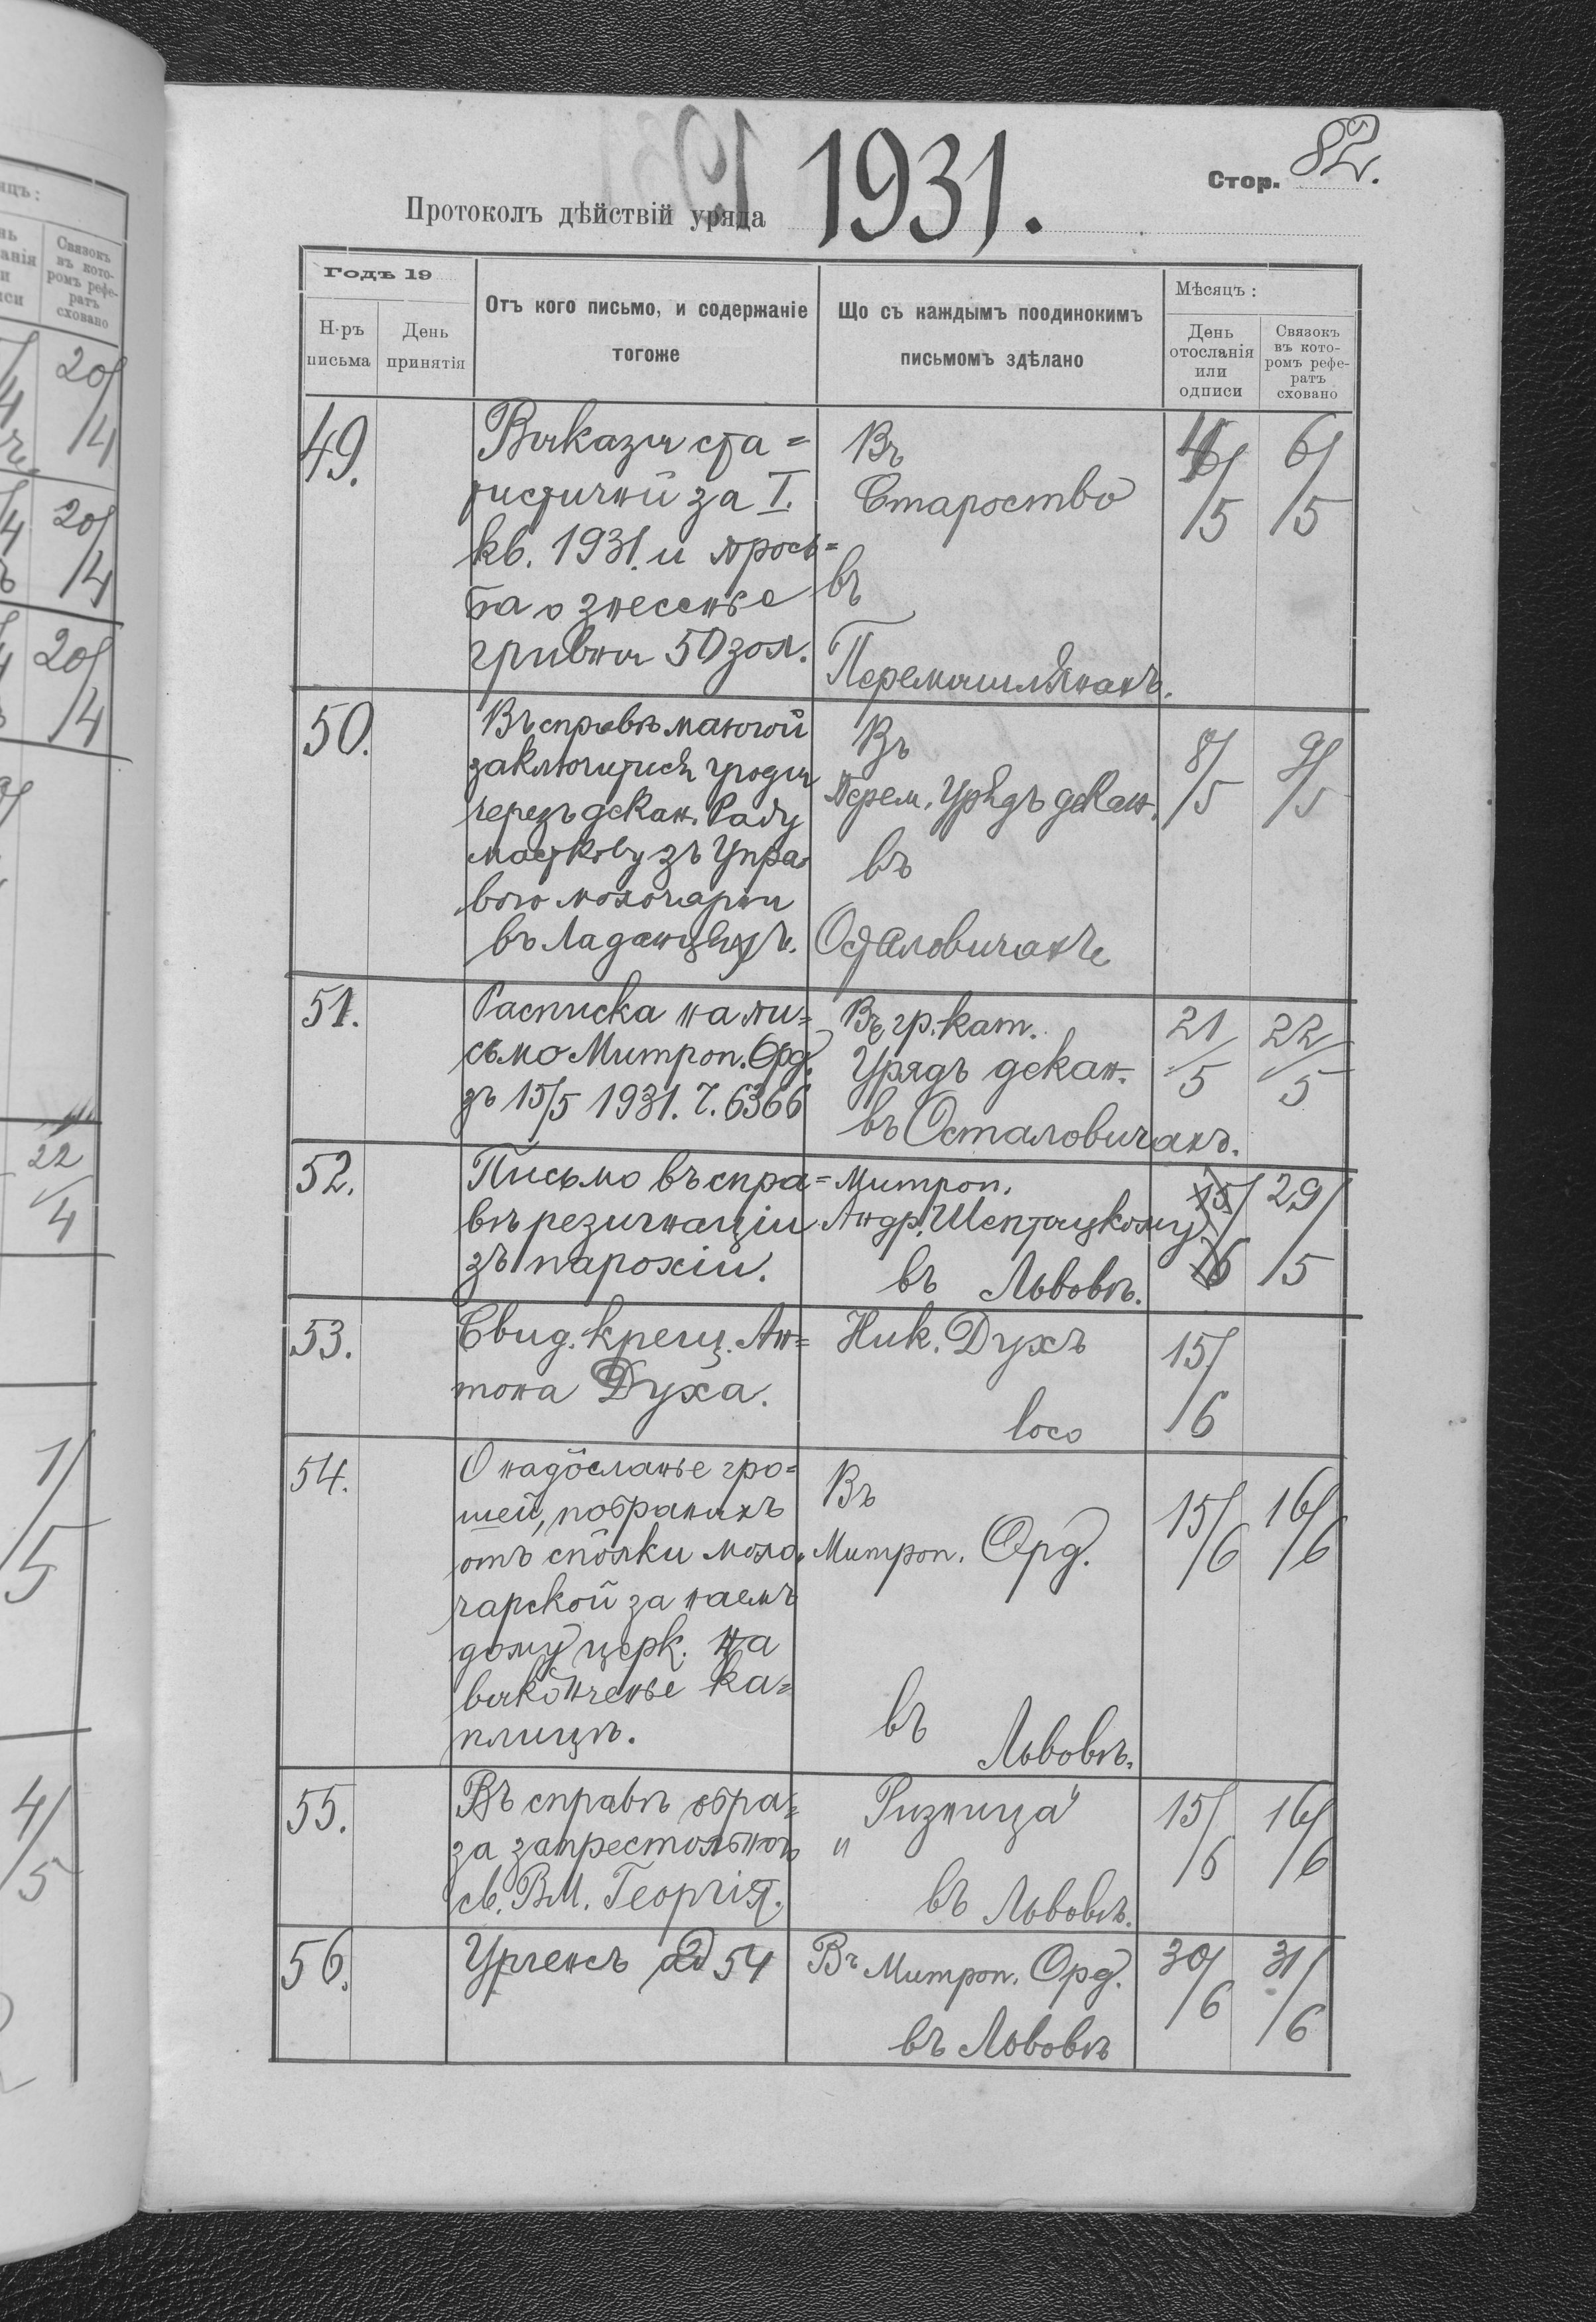 1931.
Стор. 82.
Протоколъ дѣйствій уряда
Годъ 19
Н-ръ письма
День принятія
Отъ кого письмо, и содержаніе
тогоже
Що съ каждымъ поодинокимъ
письмомъ здѣлано
Мѣсяцъ :
День
отосланія
или
одписи
Связокъ
въ кото-
ромъ рефе-
ратъ
сховано
49.
Выказы ста=
тистичнй за I.
кв. 1931. и прось=
ба о знесенье
гривны 50 зол.
Въ
Староство
въ
Перемышлянахъ.
5
6/5
50.
Въ справѣ маючой
заключитися угоды
черезъ декан. Раду
маєткову зъ Упра
вою молочарни
въ Ладанцяхъ.
Въ
Перем. Урядъ декан.
въ
Осталовичахъ
8/5
9/5
51.
Расписка на пи=
сьмо Митроп. Орд.
зъ 15/5 1931. Ч. 6366
Въ гр. кат.
Урядъ декан.
въ Осталовичахъ.
21/5
22/5
52.
Письмо въ спра=
вѣ резигнаціи
зъ парохіи.
Митроп.
Андр. Шептицкому
въ Львовѣ.
15/6
29/5
53.
Свид. крещ. Ан=
тона Духа.
Ник. Духъ
loco
15/6
54.
О надôсланье гро=
шей, побраныхъ
отъ спôлки моло.
чарской за наемъ
дому церк. на
выкôнченье ка=
плицѣ.
Въ
Митроп. Орд.
въ
Львовѣ.
15/6
16/6
55.
Въ справѣ обра=
за запрестольного
св. ВМ. Георгія.
"Ризница"
въ Львовѣ.
15/6
16/6
56.
Ургенсъ ad 54
Въ Митроп. Орд.
въ Львовѣ
30/6
31/6
яцъ :
Связокъ
въ кото-
ромъ рефе-
ратъ
сховано
20/4
20/4
20/4
22/4
1/5
4/5